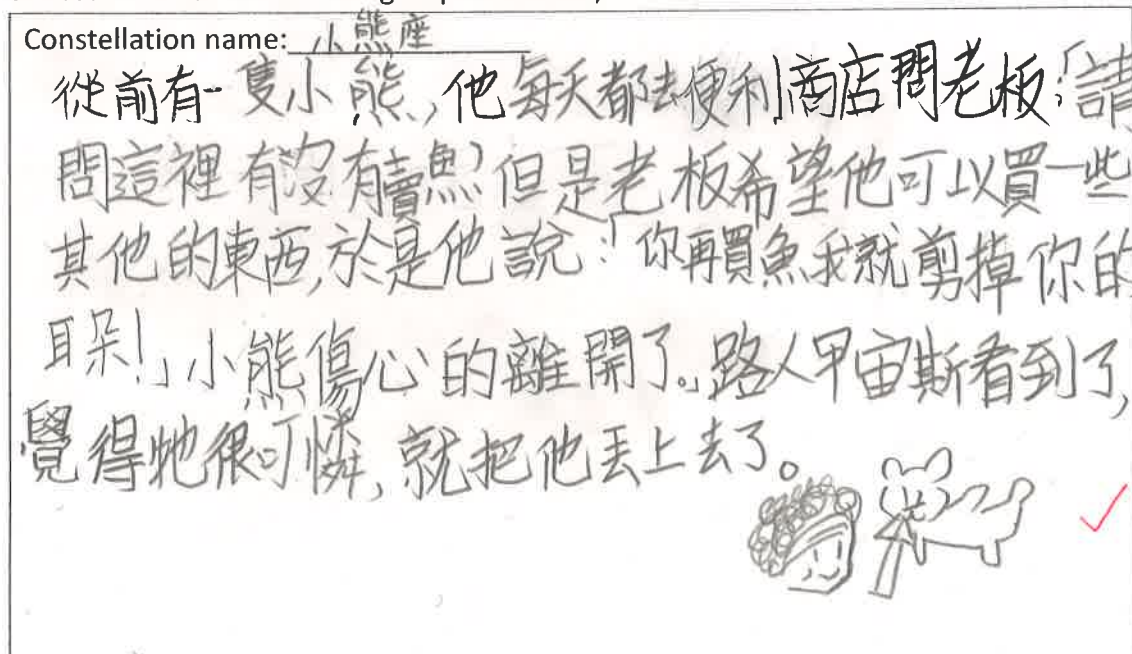 Constellation name: 小熊座
從前有一隻小熊,他每天都去便利商店問老板:「請
問這裡有沒有賣魚?但是老板希望他可以買一些
其他的東西,於是他說:「你再買魚我就剪掉你的
耳朵!」小熊傷心的離開了。路人甲宙斯看到了,
覺得牠很可憐,就把他丟上去了。